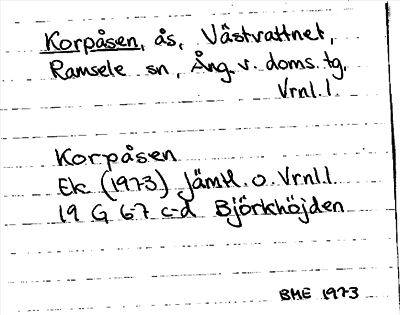 Korpåsen, ås, Västvattnet,
Ramsele sn, Ång. v. doms. tg.
Vrnl. l.
Korpåsen
Ek (1973) Jämtl. o. Vrnl.l.
19 G 67 c-d Björkhöjden
BME 1973